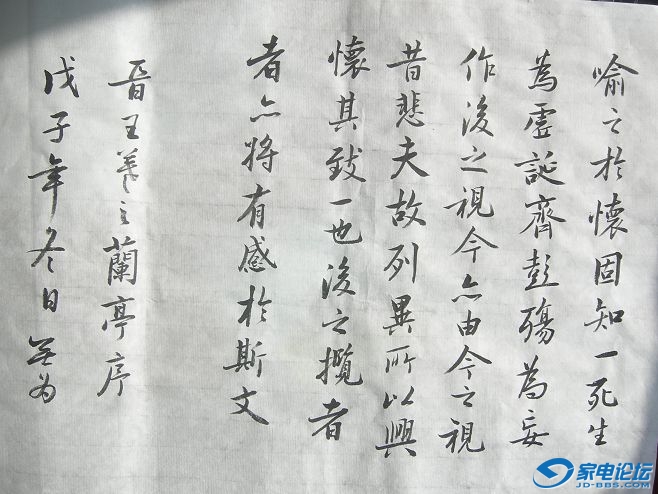 喻之於懷固知一死生
為虛誕齊彭殤為妄
作後之視今亦由今之視
昔悲夫故列異所以興
懷其致一也後之攬者
者亦將有感於斯文
晉王羲之蘭亭序
戊子年冬日 無为
家电论坛
JD-BBS.COM